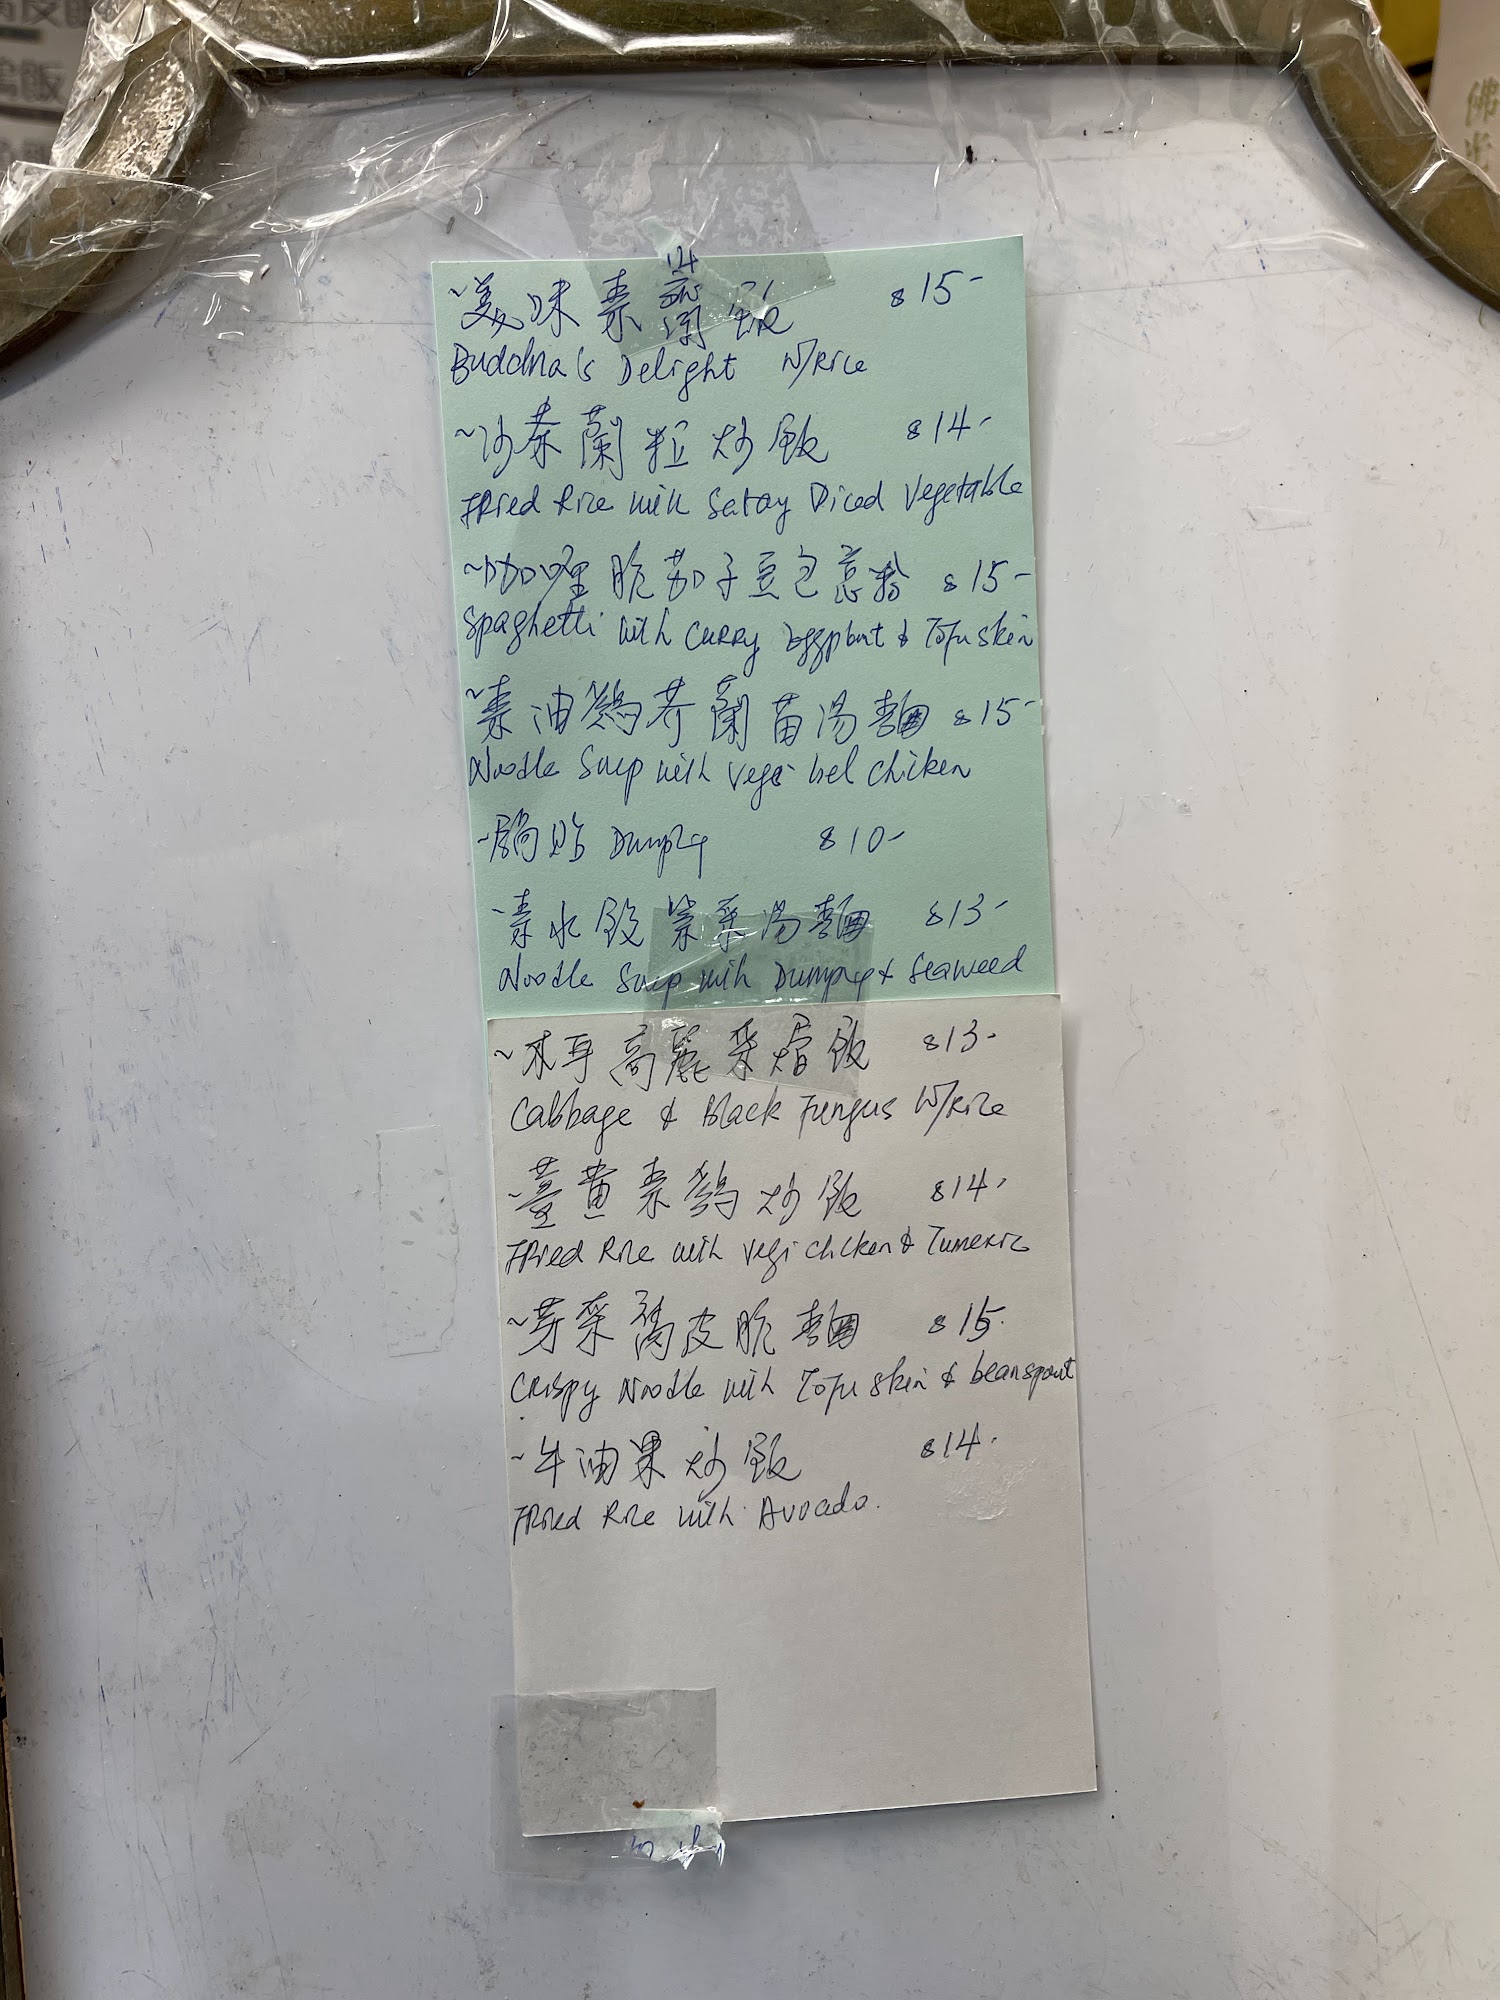 14
~美味素齋飯 $15-
Buddha's Delight W/Rice
~沙茶蘭粒炒飯 $14-
Fried Rice with Satay Diced Vegetable
~咖哩脆茄子豆包意粉 $15-
Spaghetti with Curry Eggplant & Tofu skin
~素油鷄芥蘭苗湯麵 $15-
Noodle Soup with Vegi chicken
-鍋貼 $10-
-素水餃紫菜湯麵 $13-
Noodle Soup with & Seaweed
~木耳高麗菜燴飯 $13-
Cabbage & Black Fungus W/Rice
~薑黄素鷄炒飯 $14-
Fried Rice with Vegi chicken & Tumeric
~芽菜腐皮脆麵 $15-
Crispy Noodle with Tofu skin & beansprout
-牛油果炒飯 $14-
Fried Rice with Avocado.